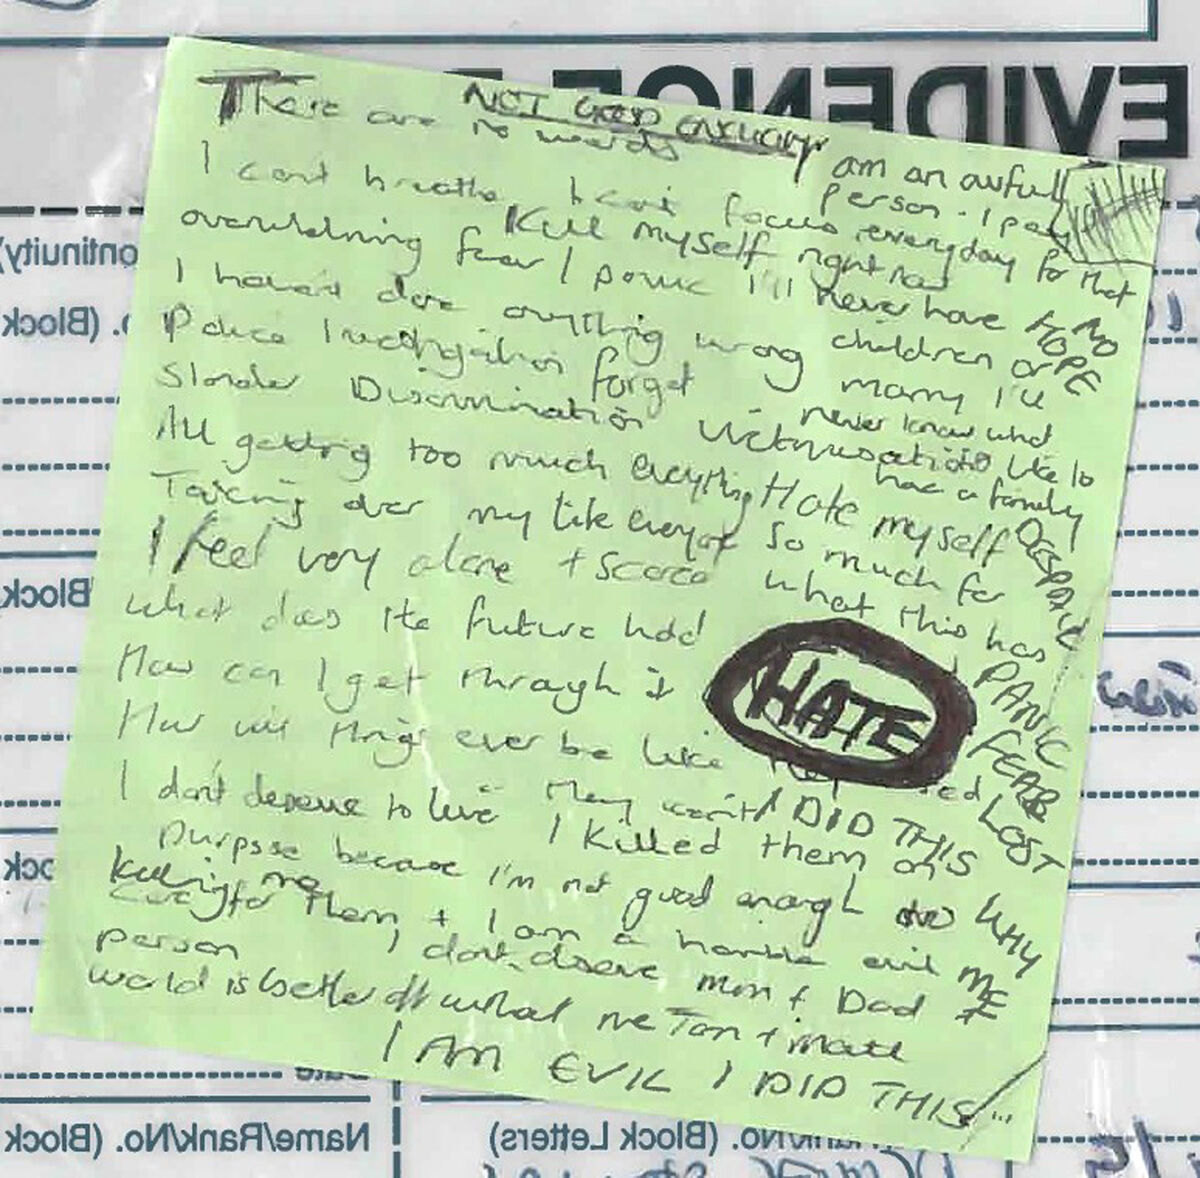 EVIDENCE
NOT GOOD ENOUGH
There are no words
I am an awful person. I pay everyday for that
I can't breathe I can't focus
Kill myself right now
overwhelming fear / panic I'll never have
NO HOPE
I haven't done anything wrong children or
marry I'll
Police Investigation forget
never know what
Slander Discrimination Victimisation
like to have a family
All getting too much everything Hate myself
DESPAIR
Taking over my life everyday so much for
I feel very alone + scared what this has
What does the future hold
PANIC
How can I get through it HATE
FEAR
How will things ever be like
LOST
I don't deserve to live They won't I DID THIS
I killed them on
purpose because I'm not good enough to WHY
killing me
care for them + I am a horrible evil ME
person I don't deserve Mum + Dad
world is better off without me Tom + Matt
I AM EVIL I DID THIS...
ontinuity)
. (Block
(Block
ock
Date
Name/Rank/No. (Block
Rank/No. (Block Letters)